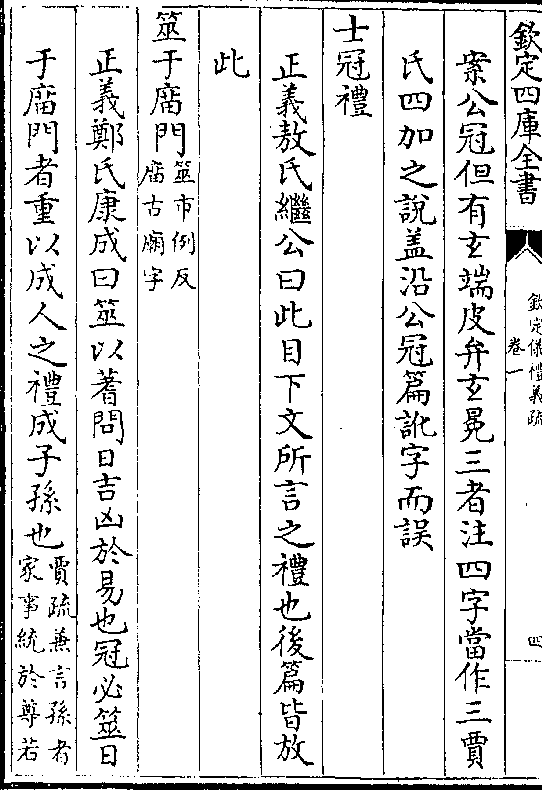 欽定四庫全書
欽定儀禮義疏
卷一
四
案公冠但有玄端皮弁玄冕三者注四字當作三賈
氏四加之說蓋沿公冠篇訛字而誤
士冠禮
正義敖氏繼公曰此目下文所言之禮也後篇皆放
此
筮于庿門筮市例反
庿古廟字
正義鄭氏康成曰筮以蓍問日吉凶於易也冠必筮日
于庿門者重以成人之禮成子孫也賈疏兼言孫者
家事統於尊若